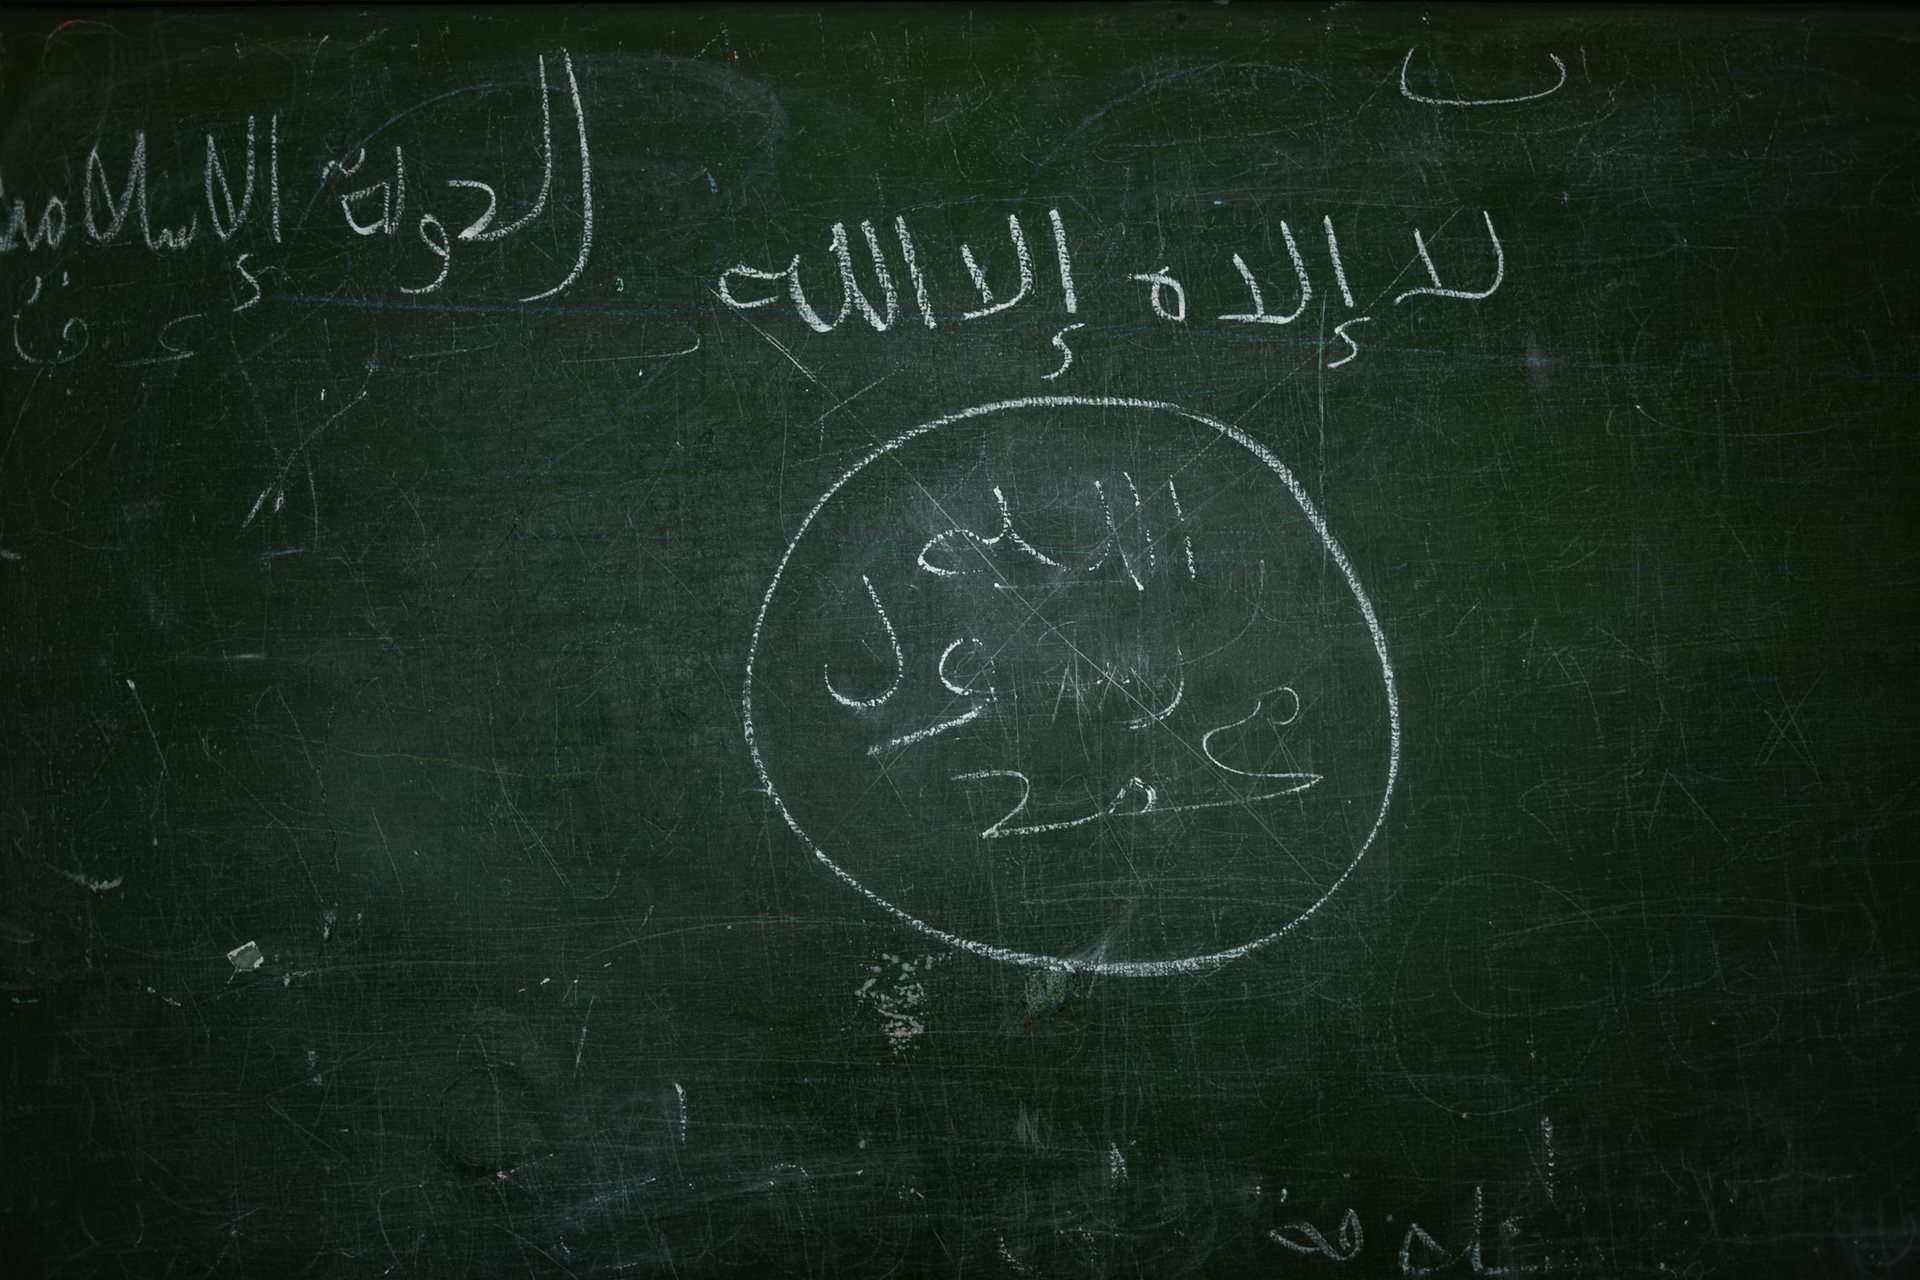 الدولة الإسلامية
لا إلاه إلا الله
الله
رسول
محمد